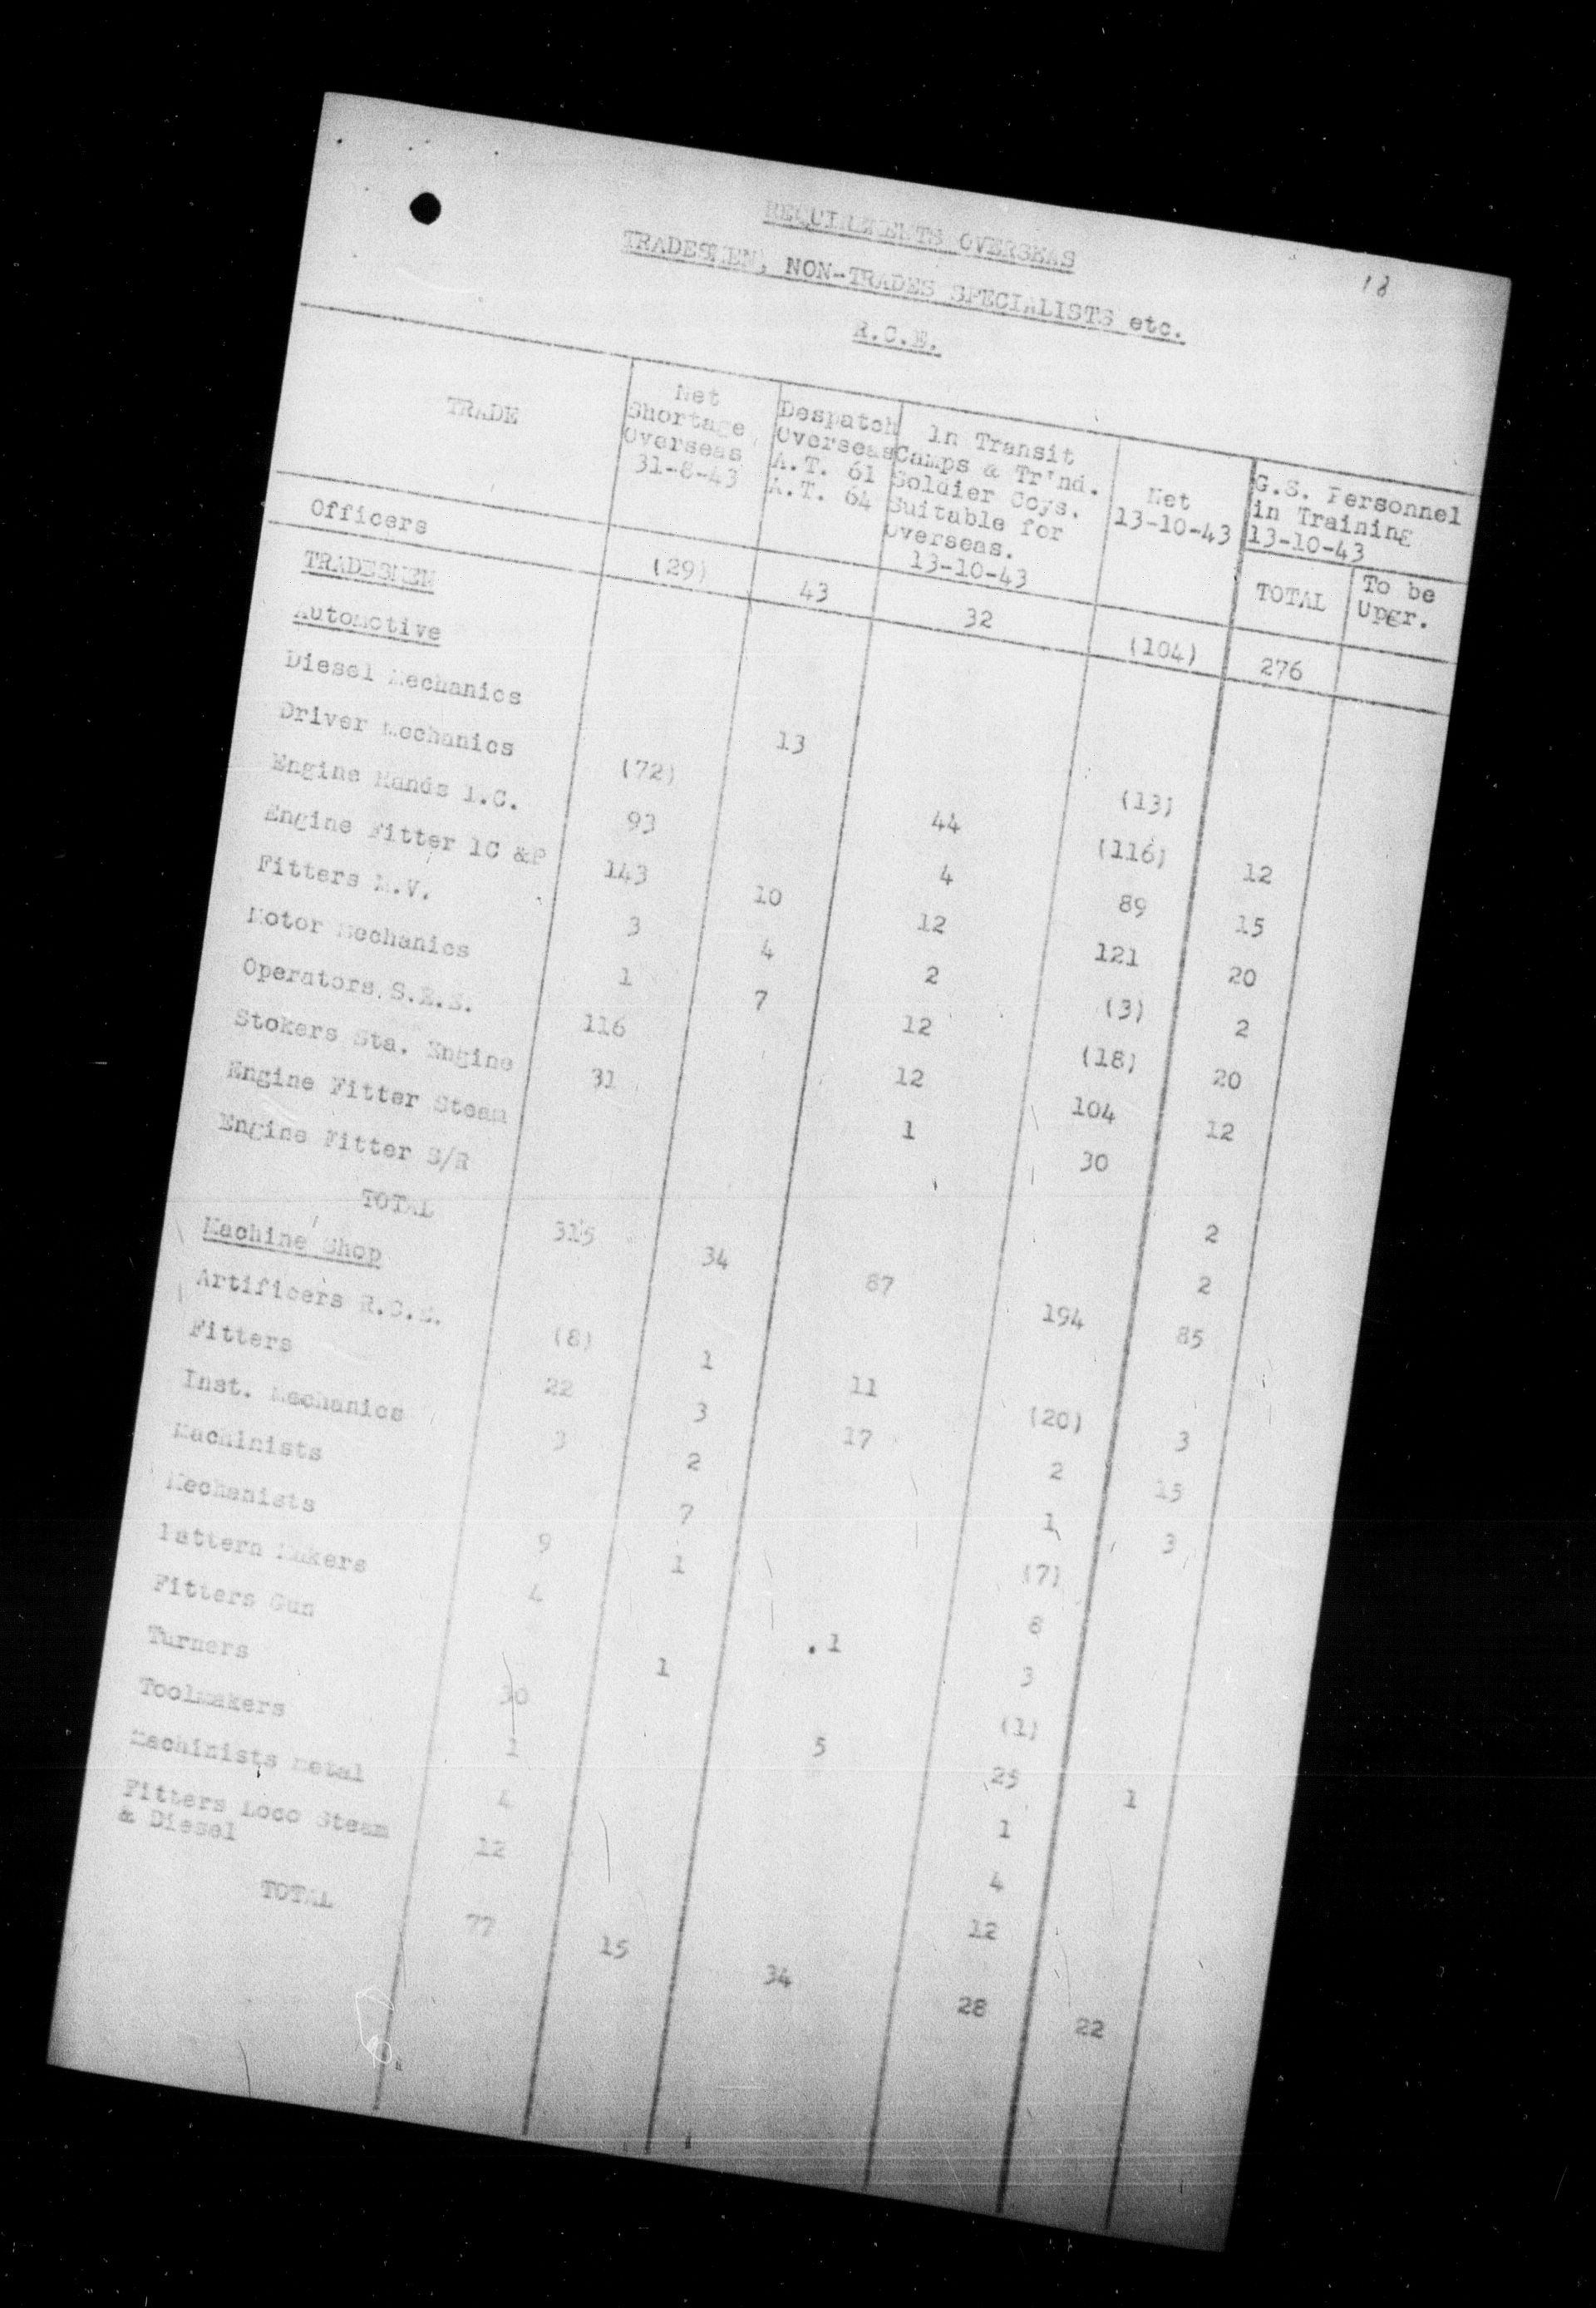 18
REQUIREMENTS OVERSEAS
TRADESMEN, NON-TRADES SPECIALISTS etc.
R.C.E.
TRADE
Net
Shortage
Overseas
31-8-43
Despatch
Overseas
A.T. 61
A.T. 64
In Transit
Camps & Tr'nd.
Soldier Coys.
Suitable for
Overseas.
13-10-43
Net
13-10-43
G.S. Personnel
in Training
13-10-43
TOTAL
To be
Upgr.
Officers (29) 43 32 (104) 276
TRADESMEN
Automotive
Diesel Mechanics 13 (13)
Driver Mechanics (72) 44 (116) 12
Engine Hands I.C. 93 4 89 15
Engine Fitter IC &P 143 10 12 121 20
Fitters M.V. 3 4 2 (3) 2
Motor Mechanics 1 7 12 (18) 20
Operators S.E.S. 116 12 104 12
Stokers Sta. Engine 31 1 30
Engine Fitter Steam 2
Engine Fitter S/R 2
TOTAL 315 34 87 194 85
Machine Shop
Artificers R.C.E. (8) 1 11 (20) 3
Fitters 22 3 17 2 15
Inst. Mechanics 3 2 1 3
Machinists 7 (7)
Mechanists 9 1 8
Pattern Makers 4 1 3
Fitters Gun 1 (1)
Turners 30 5 25 1
Toolmakers 1 1
Machinists Metal 4 4
Fitters Loco Steam
& Diesel 12 12
TOTAL 77 15 34 28 22